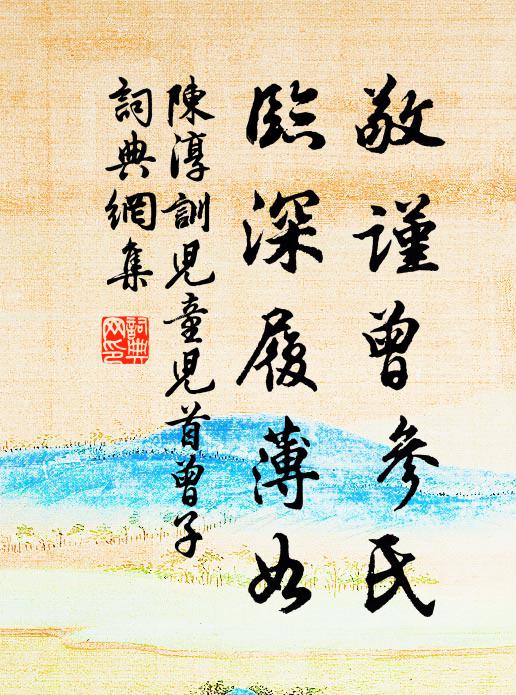 敬謹曾參氏
臨深履薄如
陳淳訓児童児首曾子
詞典網集
詞典
网印